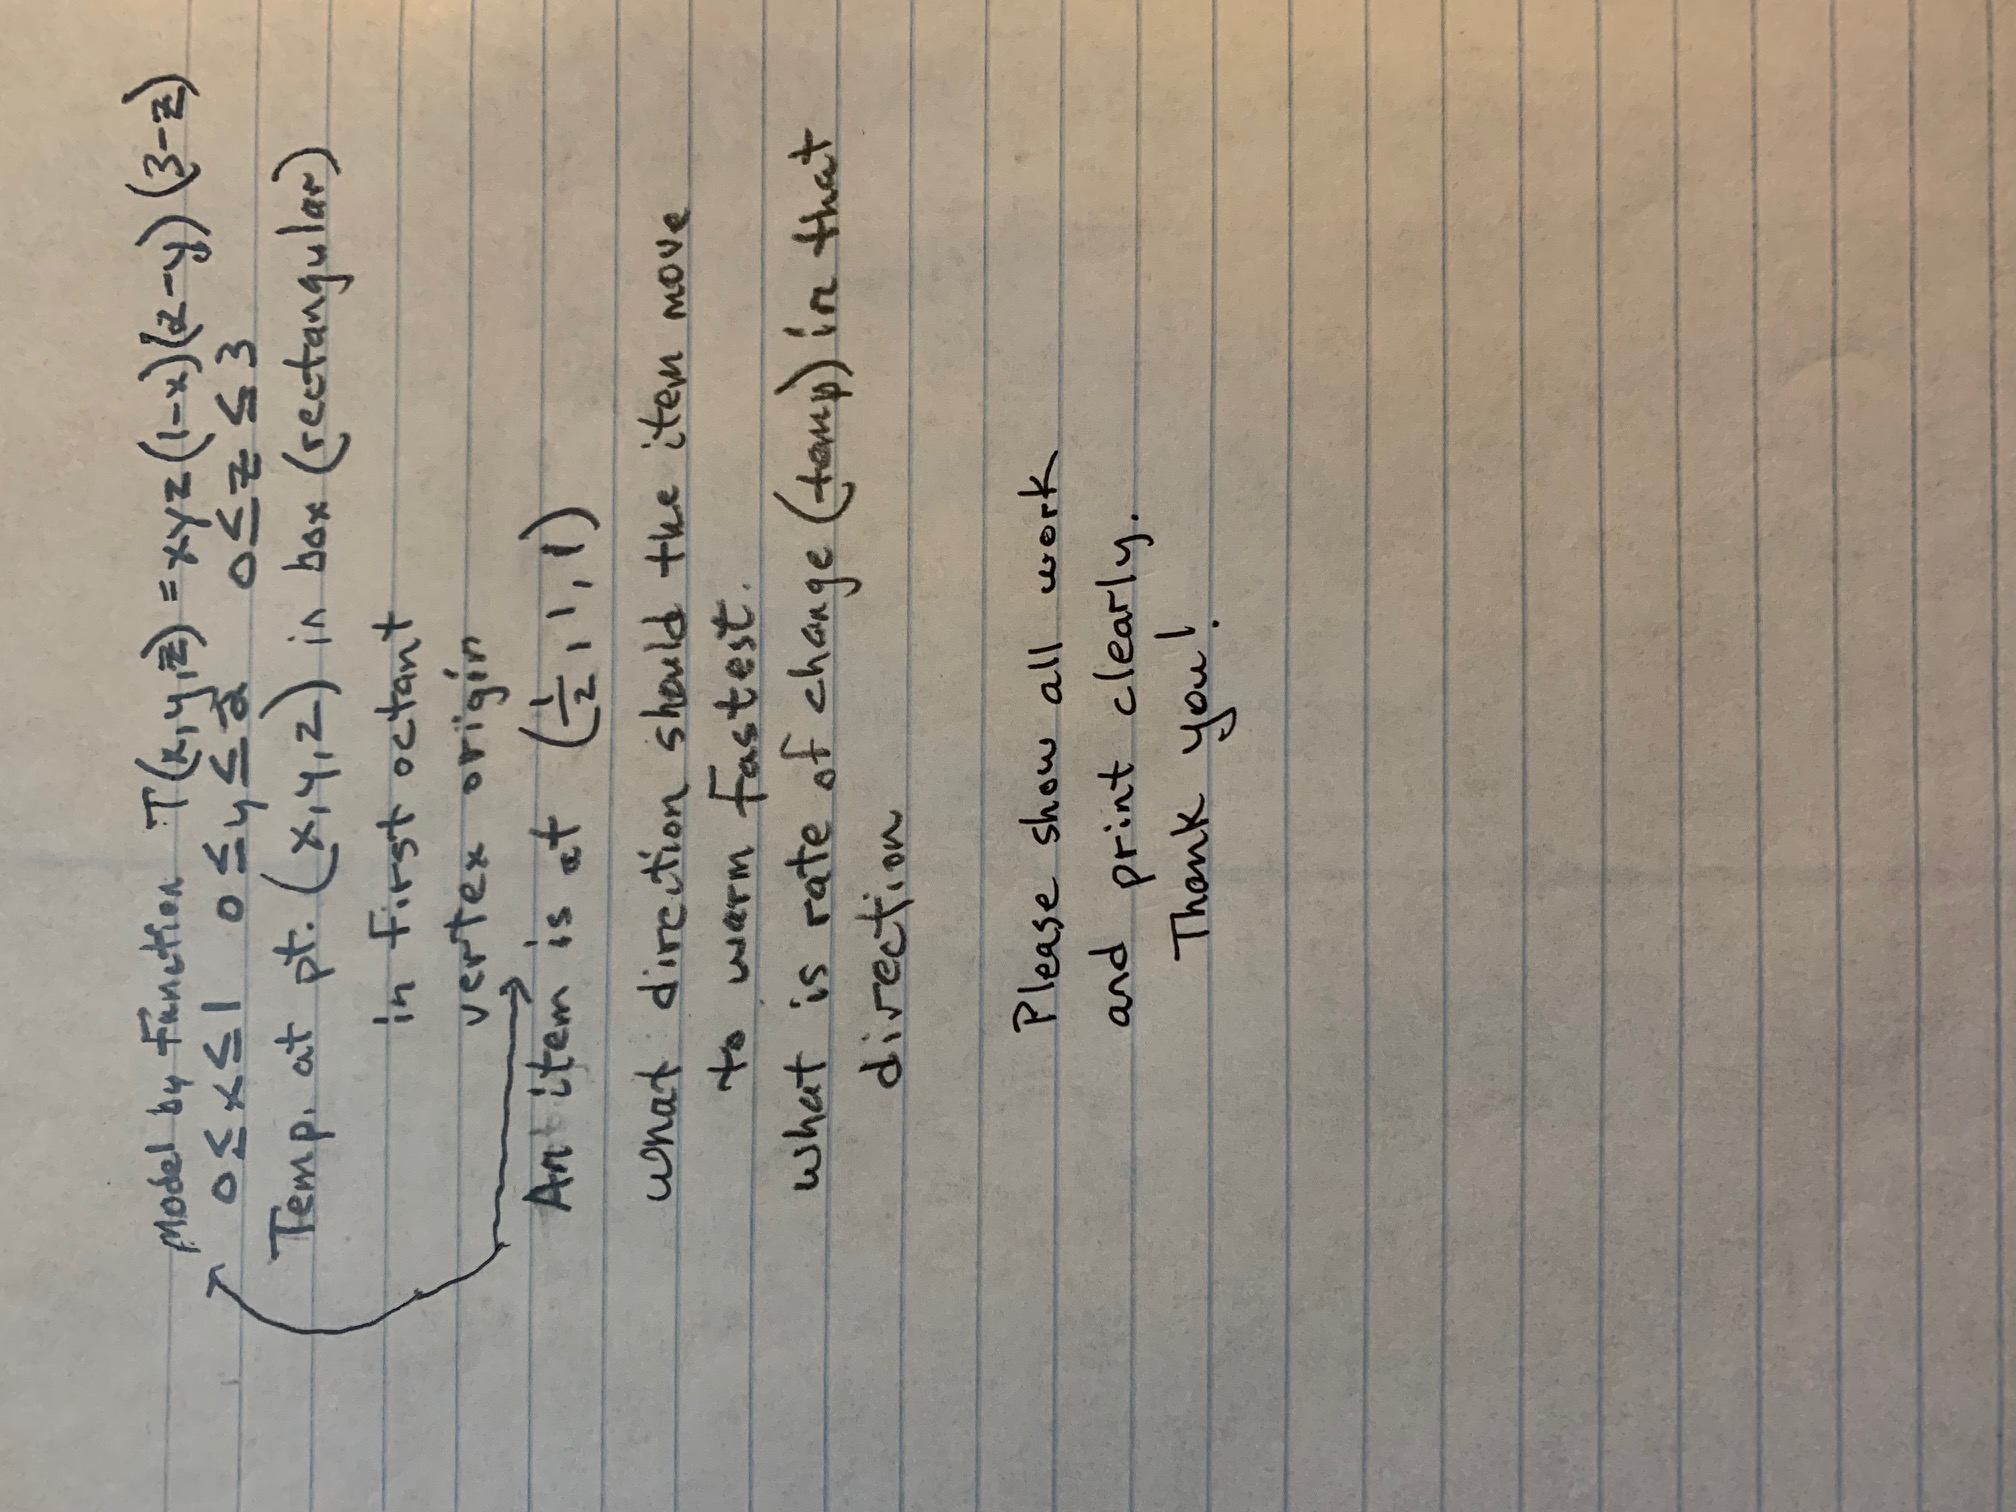 Model by Function T(x,y,z) = xyz(1-x)(2-y)(3-z)
0 ≤ x ≤ 1 0 ≤ y ≤ 2 0 ≤ z ≤ 3
Temp. at pt. (x,y,z) in box (rectangular)
in first octant
vertex origin
An item is at (1/2, 1, 1)
what direction should the item move
to warm fastest.
what is rate of change (temp) in that
direction
Please show all work
and print clearly.
Thank you!